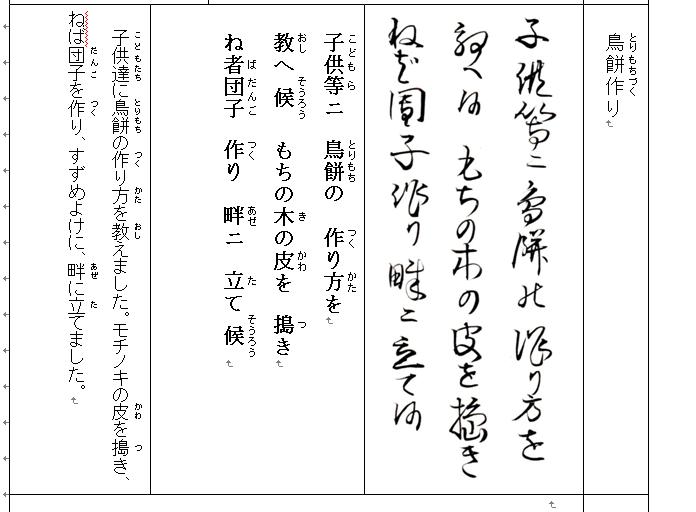 鳥餅作り
子供等ニ鳥餅の作り方を
教へ候もちの木の皮を搗き
ねば団子作り畔ニ立て候
子供等ニ 鳥餅の 作り方を
教へ候 もちの木の皮を 搗き
ね者団子 作り 畔ニ 立て候
子供達に鳥餅の作り方を教えました。モチノキの皮を搗き、
ねば団子を作り、すずめよけに、畔に立てました。